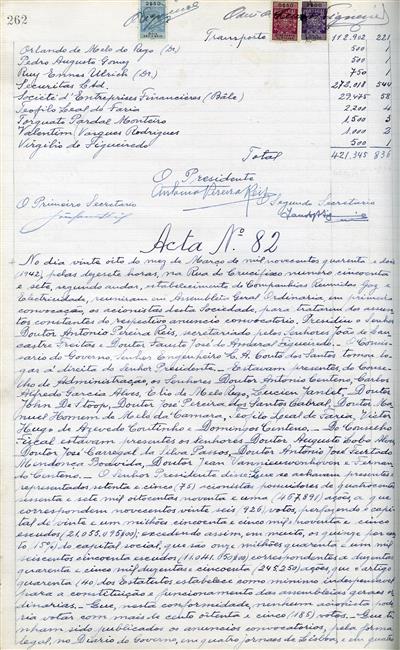 262
Transporte 112.902 221
Orlando de Melo do Rego (Dr.) 500 1
Pedro Augusto Gomes 500 1
Ruy Ennes Ulrich (Dr.) 750 1
Securitas Ltd. 272.018 544
Société d'Entreprises Financières (Bâle) 29.475 58
Teofilo Leal de Faria 2.200 4
Torquato Pardal Monteiro 1.500 3
Valentim Vargues Rodrigues 1.000 2
Virgilio de Figueiredo 500 1
Total 421.345 836
O Presidente
Antonio Pereira Reis
O Primeiro Secretario
Segundo Secretario
Acta Nº 82
No dia vinte oito do mez de Março de mil novecentos quarenta e dois
(1942), pelas dezasete horas, na Rua do Crucifixo numero cincoenta
e sete, segundo andar, estabelecimento de Companhias Reunidas Gaz e
Electricidade, reuniram em Assembleia Geral Ordinaria, em primeira
convocação, os acionistas desta Sociedade, para tratarem dos assun
tos constantes do respectivo anuncio convocatorio. Presidiu o Senhor
Doutor Antonio Pereira Reis, secretariado pelos Senhores João de Len
castre Freitas e Doutor Fausto José do Amaral Figueiredo. O Comis
sario do Governo, Senhor Engenheiro C. A. Couto dos Santos tomou lo
gar á direita do Senhor Presidente. Estavam presentes, do Conse
lho de Administração, os Senhores Doutor Antonio Centeno, Carlos
Alfredo Garcia Alves, Clio de Melo Rego, Lucien Janlet, Doutor
John De Stoop, Doutor José Pereira dos Santos Cabral, Doutor Ma
nuel Homem de Melo da Camara, Teofilo Leal de Faria, Victor
Hugo de Azevedo Coutinho e Domingos Centeno. Do Conselho
Fiscal estavam presentes os senhores Doutor Augusto Lobo Alves,
Doutor José Carregal da Silva Passos, Doutor Antonio José Furtado
Mendonça Boavida, Doutor Jean Vannieuwenhoven e Fernan
do Centeno. O Senhor Presidente disse: Que se achavam presentes
representados setenta e cinco (75) acionistas possuidores de quatrocentos
sessenta e sete mil oitocentos noventa e uma (467.891) ações a que
correspondem novecentos vinte seis (926) votos, perfazendo o capi
tal de vinte e um milhões cincoenta e cinco mil e noventa e cinco
escudos (21.055.095$00); excedendo assim, em muito, os quinze por cen
to 15%) do capital social, que são onze milhões quarenta e um mil
duzentos e cincoenta escudos (11.041.250$00) correspondentes a duzentas
quarenta e cinco mil duzentas e cincoenta (245.250) ações, que o artigo
quarenta (40) dos Estatutos estabelece como minimo indispensavel
para a constituição e funcionamento das assembleias geraes or
dinarias. Que, nesta conformidade, nenhum acionista pode
ria votar com mais de cento oitenta e cinco (185) votos. Que ti
nham sido publicados os anuncios convocatorios, pela forma
legal, no Diario do Governo, em quatro jornaes de Lisboa, e em quatro